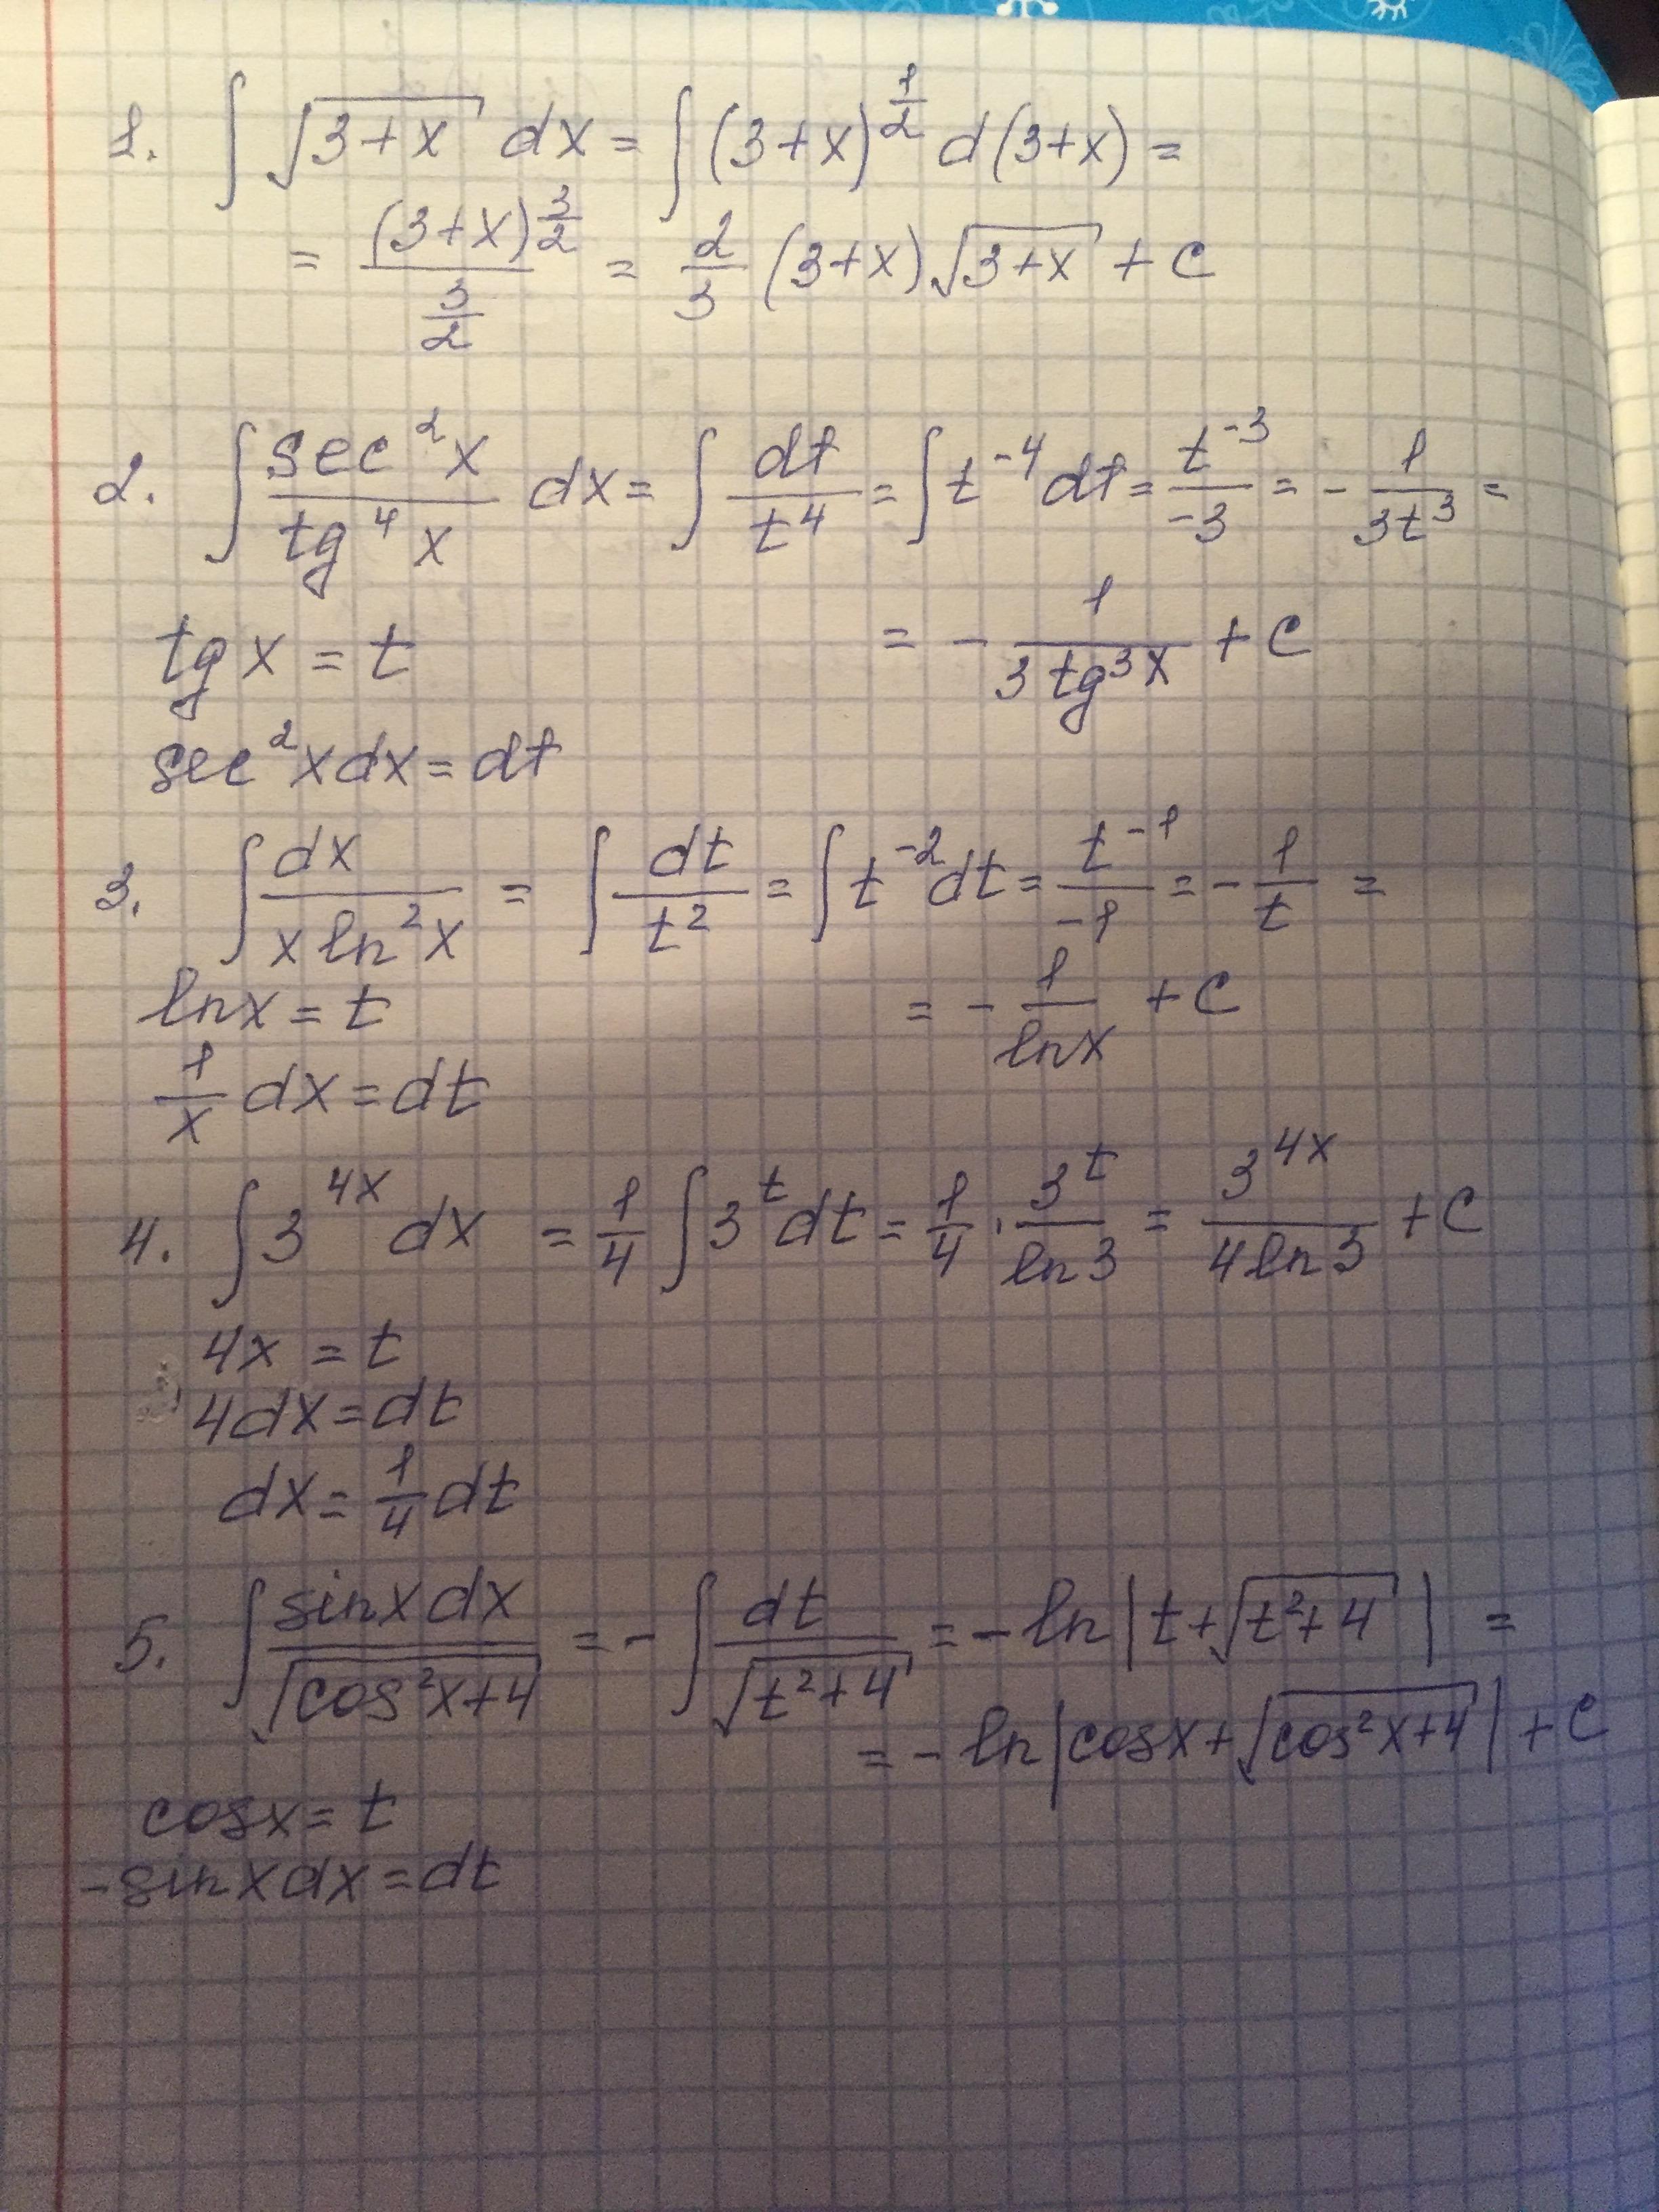 1. ∫ √(3+x) dx = ∫ (3+x)^(1/2) d(3+x) =
= (3+x)^(3/2) / (3/2) = 2/3 (3+x) √(3+x) + C
2. ∫ sec²x / tg⁴x dx = ∫ dt / t⁴ = ∫ t⁻⁴ dt = t⁻³ / -3 = - 1 / 3t³ =
tg x = t
= - 1 / 3 tg³x + C
sec²x dx = dt
3. ∫ dx / x ln²x = ∫ dt / t² = ∫ t⁻² dt = t⁻¹ / -1 = - 1/t =
ln x = t
= - 1 / ln x + C
1/x dx = dt
4. ∫ 3^(4x) dx = 1/4 ∫ 3^t dt = 1/4 · 3^t / ln 3 = 3^(4x) / 4 ln 3 + C
4x = t
4dx = dt
dx = 1/4 dt
5. ∫ sin x dx / √(cos²x+4) = - ∫ dt / √(t²+4) = - ln | t + √(t²+4) | =
= - ln | cos x + √(cos²x+4) | + C
cos x = t
- sin x dx = dt